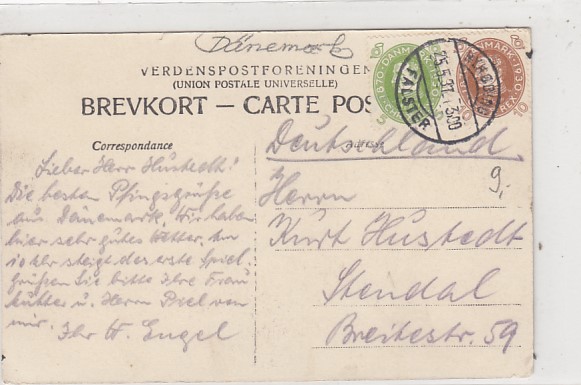 Dänemark
VERDENSPOSTFORENINGEN
(UNION POSTALE UNIVERSELLE)
BREVKORT — CARTE POS
5 DANMARK 5
1870
10 10
DANMARK 1930
NYKØBING
25.5.31. - 3.00
FALSTER
Correspondance
Lieber Herr Hustedt!
Die besten Pfingsgrüße
aus Dänemark. Wir haben
hier sehr gutes Wetter. Um
10 Uhr steigt das erste Spiel.
Grüßen Sie bitte Ihre Frau
Mutter u. Herrn Piel von
mir. Ihr W. Engel
Deutschland.
9,-
Herrn
Kurt Hustedt
Stendal
Breitestr. 59